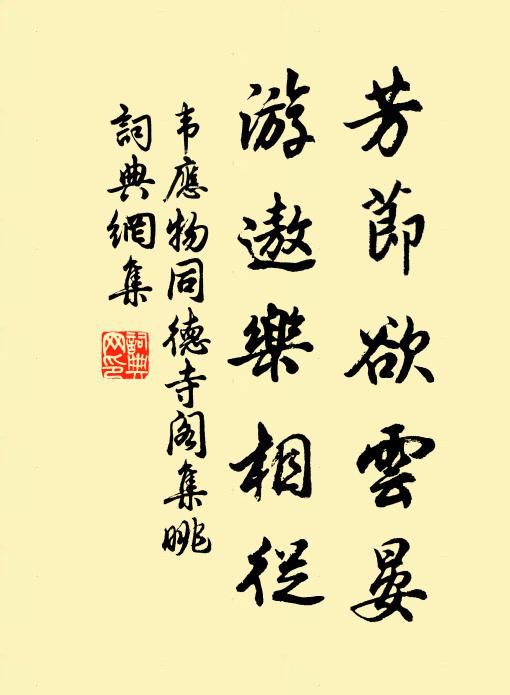 芳節欲雲晏
游遨樂相從
韦應物同德寺阁集眺
詞典網集
詞典网印